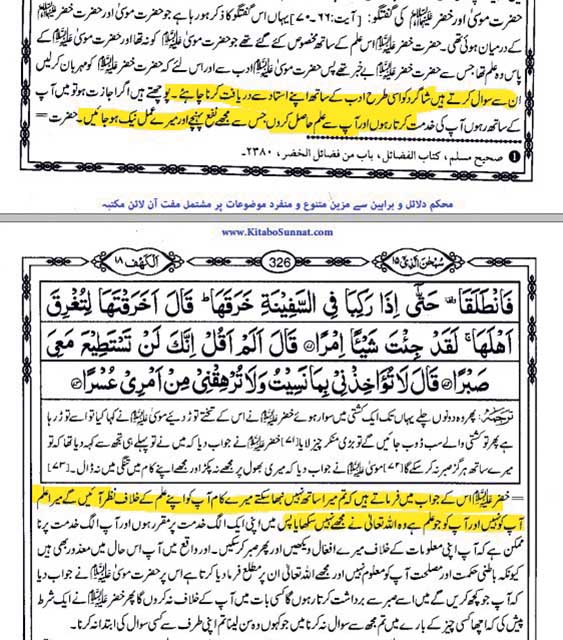 حضرت موسیٰ اور خضر علیہما السلام کی گفتگو: [آیت: ۶۶۔۷۰] یہاں اس گفتگو کا ذکر ہو رہا ہے جو حضرت موسیٰ اور حضرت خضر علیہما السلام
کے درمیان ہوئی تھی۔ حضرت خضر علیہ السلام اس علم کے ساتھ مخصوص کئے گئے تھے جو حضرت موسیٰ علیہ السلام کو نہ تھا اور حضرت موسیٰ علیہ السلام کے
پاس وہ علم تھا جس سے حضرت خضر علیہ السلام بے خبر تھے پس حضرت موسیٰ علیہ السلام ادب سے اور اس لئے کہ حضرت خضر علیہ السلام کو مہربان کر لیں
ان سے سوال کرتے ہیں شاگرد کو اسی طرح ادب کے ساتھ اپنے استاد سے دریافت کرنا چاہئے۔ پوچھتے ہیں اگر اجازت ہو تو میں آپ
کے ساتھ رہوں آپ کی خدمت کرتا رہوں اور آپ سے علم حاصل کروں جس سے مجھے نفع پہنچے اور میرے عمل نیک ہو جائیں۔ حضرت =
❶ صحیح مسلم، کتاب الفضائل، باب من فضائل الخضر، ۲۳۸۰۔
محکم دلائل و براہین سے مزین متنوع و منفرد موضوعات پر مشتمل مفت آن لائن مکتبہ
www.KitaboSunnat.com
سُبْحٰنَ الَّذِیْ ۱۵ 326 اَلْکَهْف ۱۸
فَانْطَلَقَا ٚ حَتّٰۤی اِذَا رَكِبَا فِی السَّفِیْنَةِ خَرَقَهَا ؕ قَالَ اَخَرَقْتَهَا لِتُغْرِقَ
اَهْلَهَا ۚ لَقَدْ جِئْتَ شَیْـًٔا اِمْرًا ۝ قَالَ اَلَمْ اَقُلْ اِنَّكَ لَنْ تَسْتَطِیْعَ مَعِیَ
صَبْرًا ۝ قَالَ لَا تُؤَاخِذْنِیْ بِمَا نَسِیْتُ وَلَا تُرْهِقْنِیْ مِنْ اَمْرِیْ عُسْرًا ۝
ترجمہ: پھر وہ دونوں چلے یہاں تک ایک کشتی میں سوار ہوئے خضر علیہ السلام نے اس کے تختے توڑ دیئے موسیٰ علیہ السلام نے کہا کیا تو اسے توڑ رہا
ہے پھر تو کشتی والے سب ڈوب جائیں گے تو بڑی منکر چیز لایا [۷۱] خضر علیہ السلام نے جواب دیا کہ میں نے تو پہلے ہی تجھ سے کہہ دیا تھا کہ تو
میرے ساتھ ہرگز صبر نہ کر سکے گا [۷۲] موسیٰ علیہ السلام نے جواب دیا کہ میری بھول پر مجھے نہ پکڑ اور مجھے اپنے کام میں تنگی میں نہ ڈال۔ [۷۳]
= خضر علیہ السلام اس کے جواب میں فرماتے ہیں کہ تم میرا ساتھ نہیں نبھا سکتے میرے کام آپ کو اپنے علم کے خلاف نظر آئیں گے میرا علم
آپ کو نہیں اور آپ کو جو علم ہے وہ اللہ تعالیٰ نے مجھے نہیں سکھایا پس میں اپنی ایک الگ خدمت پر مقرر ہوں اور آپ الگ خدمت پر نا
ممکن ہے کہ آپ اپنی معلومات کے خلاف میرے افعال دیکھیں اور پھر صبر کر سکیں۔ اور واقع میں آپ اس حال میں معذور بھی ہیں
کیونکہ باطنی حکمت اور مصلحت آپ کو معلوم نہیں اور مجھے اللہ تعالیٰ ان پر مطلع فرما دیا کرتا ہے اس پر حضرت موسیٰ علیہ السلام نے جواب دیا
کہ آپ جو کچھ کریں گے میں اسے صبر سے برداشت کرتا رہوں گا کسی بات میں آپ کے خلاف نہ کروں گا پھر خضر علیہ السلام نے ایک شرط
پیش کی کہ اچھا کسی چیز کے بارے میں تم مجھ سے سوال نہ کرنا میں جو کہوں وہ سن لینا تم اپنی طرف سے کسی سوال کی ابتدا نہ کرنا۔